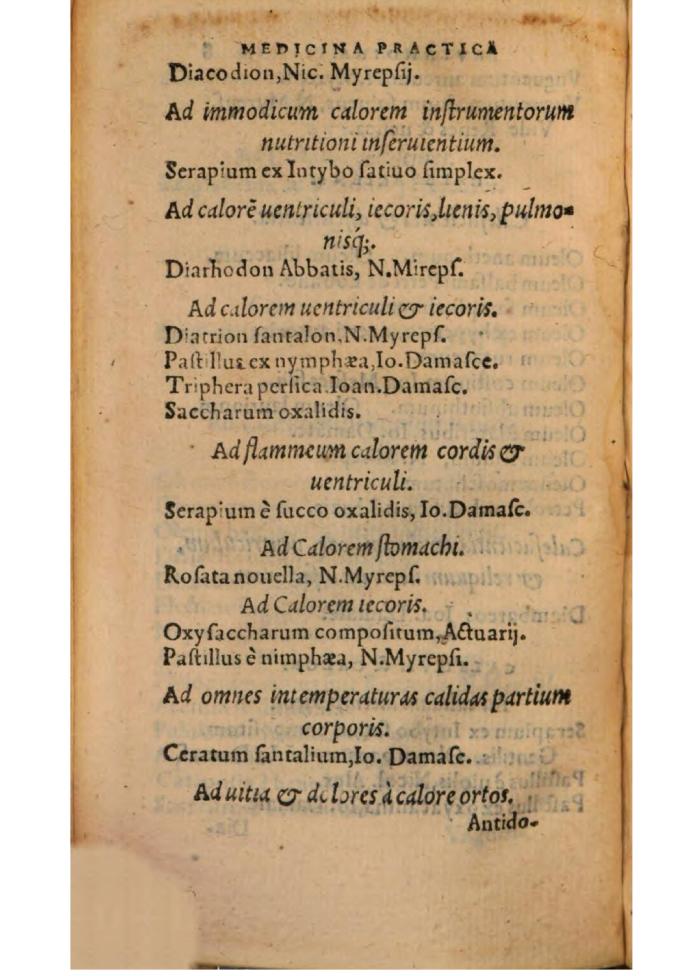 MEDICINA PRACTICA
Diacodion, Nic. Myrepſij.
Ad immodicum calorem inſtrumentorum
nutritioni inſeruientium.
Serapium ex Intybo ſatiuo ſimplex.
Ad calorē uentriculi, iecoris, lienis, pulmo-
nisq́;.
Diarhodon Abbatis, N. Mirepſ.
Ad calorem uentriculi & iecoris.
Diatrion ſantalon, N. Myrepſ.
Paſtillus ex nymphæa, Io. Damaſce.
Triphera perſica Ioan. Damaſc.
Saccharum oxalidis.
Ad flammeum calorem cordis &
uentriculi.
Serapium è ſucco oxalidis, Io. Damaſc.
Ad Calorem ſtomachi.
Roſata nouella, N. Myrepſ.
Ad Calorem iecoris.
Oxyſaccharum compoſitum, Actuarij.
Paſtillus è nimphæa, N. Myrepſi.
Ad omnes intemperaturas calidas partium
corporis.
Ceratum ſantalium, Io. Damaſc.
Ad uitia & dolores à calore ortos.
Antido-